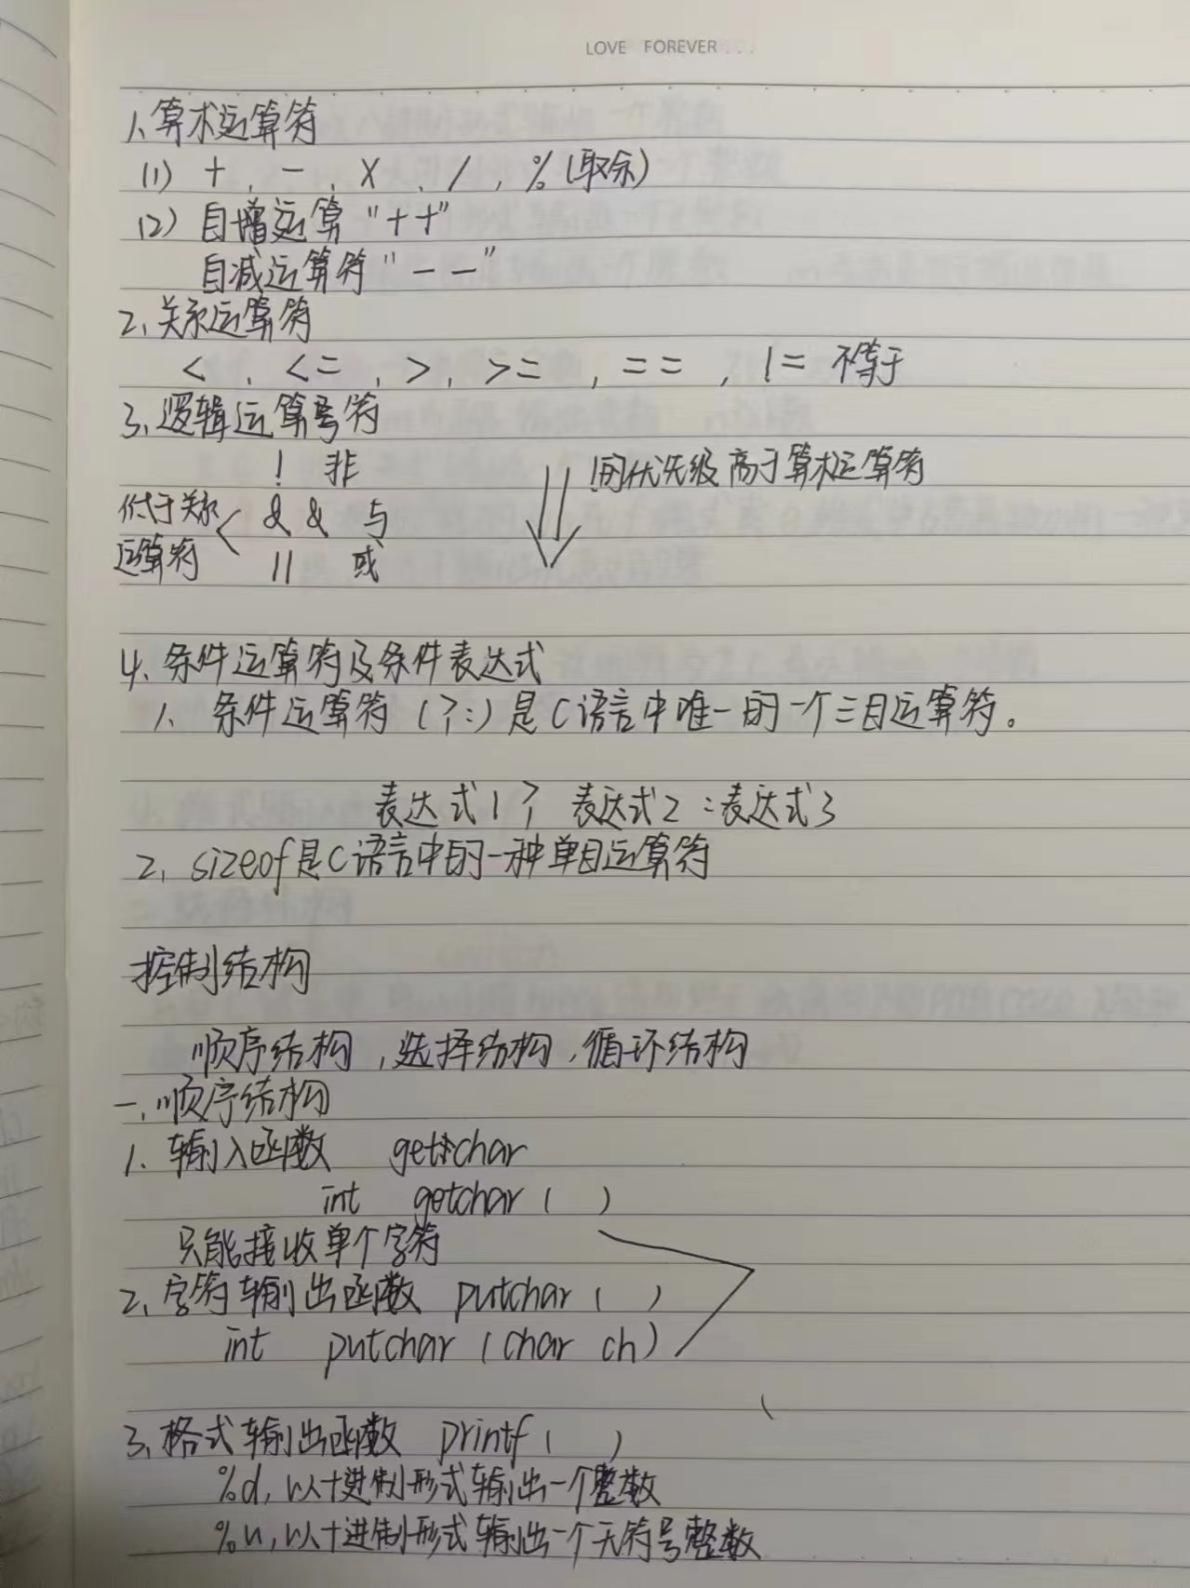 LOVE FOREVER...
1、算术运算符
(1) +, -, X, /, % (取余)
(2) 自增运算"++"
自减运算符"--"
2、关系运算符
<, <=, >, >=, ==, != 不等于
3、逻辑运算号符
! 非 !的优先级高于算术运算符
低于关系 && 与
运算符 || 或
4、条件运算符及条件表达式
1、条件运算符(?:)是C语言中唯一的一个三目运算符。
表达式1? 表达式2:表达式3
2、sizeof是C语言中的一种单目运算符
控制结构
顺序结构,选择结构,循环结构
一、顺序结构
1、输入函数 getchar
int getchar( )
只能接收单个字符
2、字符输出函数 putchar( )
int putchar(char ch)
3、格式输出函数 printf( )
%d,以十进制形式输出一个整数
%u,以十进制形式输出一个无符号整数